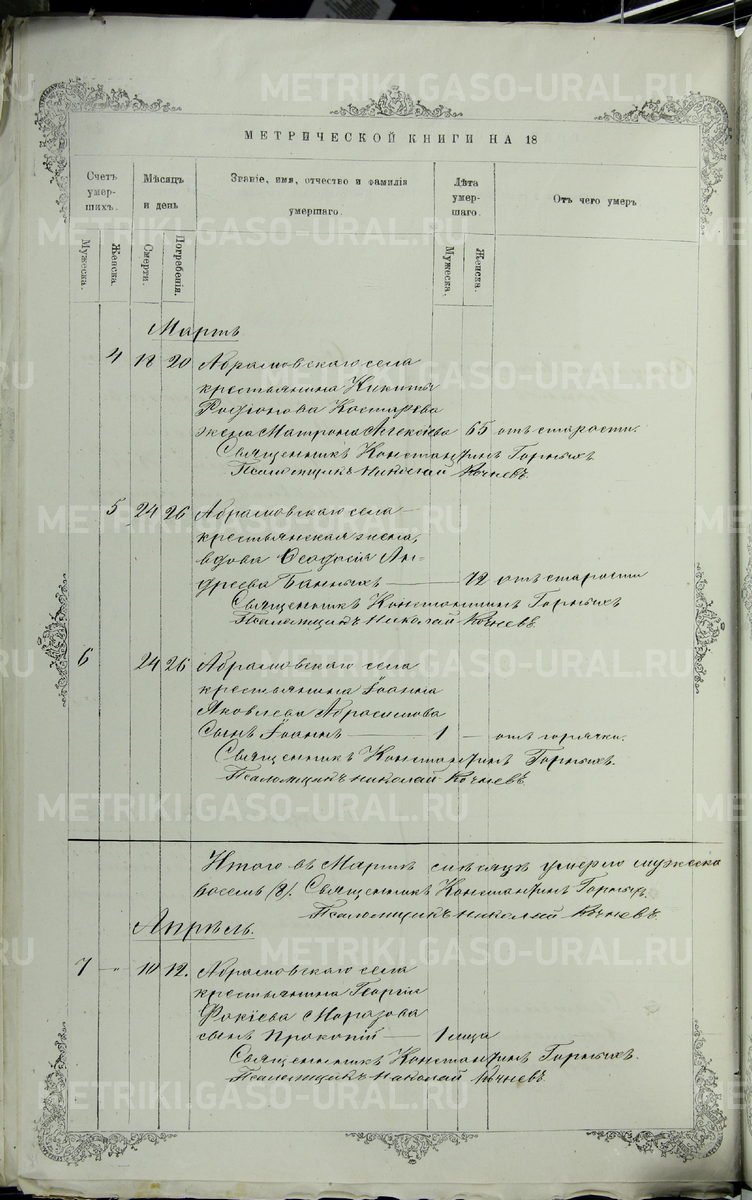 МЕТРИЧЕСКОЙ КНИГИ НА 18
Счетъ умершихъ.
Мужеска.
Женска.
Мѣсяцъ и день
Смерти.
Погребенія.
Званіе, имя, отчество и фамилія умершаго.
Лѣта умершаго.
Мужеска.
Женска.
Отъ чего умеръ
Мартъ
4 18 20 Абрамовскаго села
крестьянина Никиты
Родіонова Костарева
жена Матрона Алексѣева 65 отъ старости.
Священникъ Константинъ Горныхъ
Псаломщикъ Николай Кочневъ
5 24 26 Абрамовскаго села
крестьянская жена,
вдова Ѳеодосія Ан-
дреева Банныхъ 72 отъ старости
Священникъ Константинъ Горныхъ
Псаломщикъ Николай Кочневъ
6 24 26 Абрамовскаго села
крестьянина Іоанна
Яковлева Абросимова
сынъ Іоаннъ 1 отъ горячки.
Священникъ Константинъ Горныхъ.
Псаломщикъ Николай Кочневъ
Итого въ Мартѣ мѣсяцѣ умерло мужеска
восемь (8). Священникъ Константинъ Горныхъ.
Псаломщикъ Николай Кочневъ
Апрѣль.
7 " 10 12. Абрамовскаго села
крестьянина Георгія
Фокіева Морозова
сынъ Прокопій 1 мѣсяца
Священникъ Константинъ Горныхъ.
Псаломщикъ Николай Кочневъ
METRIKI.GASO-URAL.RU